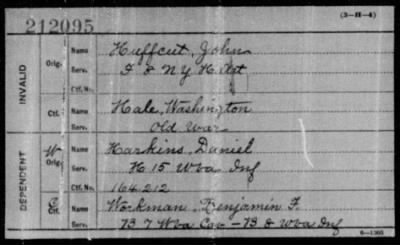 (3-H-4)
212095
INVALID
Orig.
Name
Huffcut, John
Serv.
I 8 NY H Art
Ctf. No.
Ctf.
Name
Hale, Washington
Serv.
Old War
DEPENDENT
W
Orig.
Name
Harkins, Daniel
Serv.
H 15 Wva Inf
Ctf. No.
164212
C
Ctf.
Name
Workman, Benjamin F.
Serv.
B 7 Wva Cav - B 8 Wva Inf
6-1303